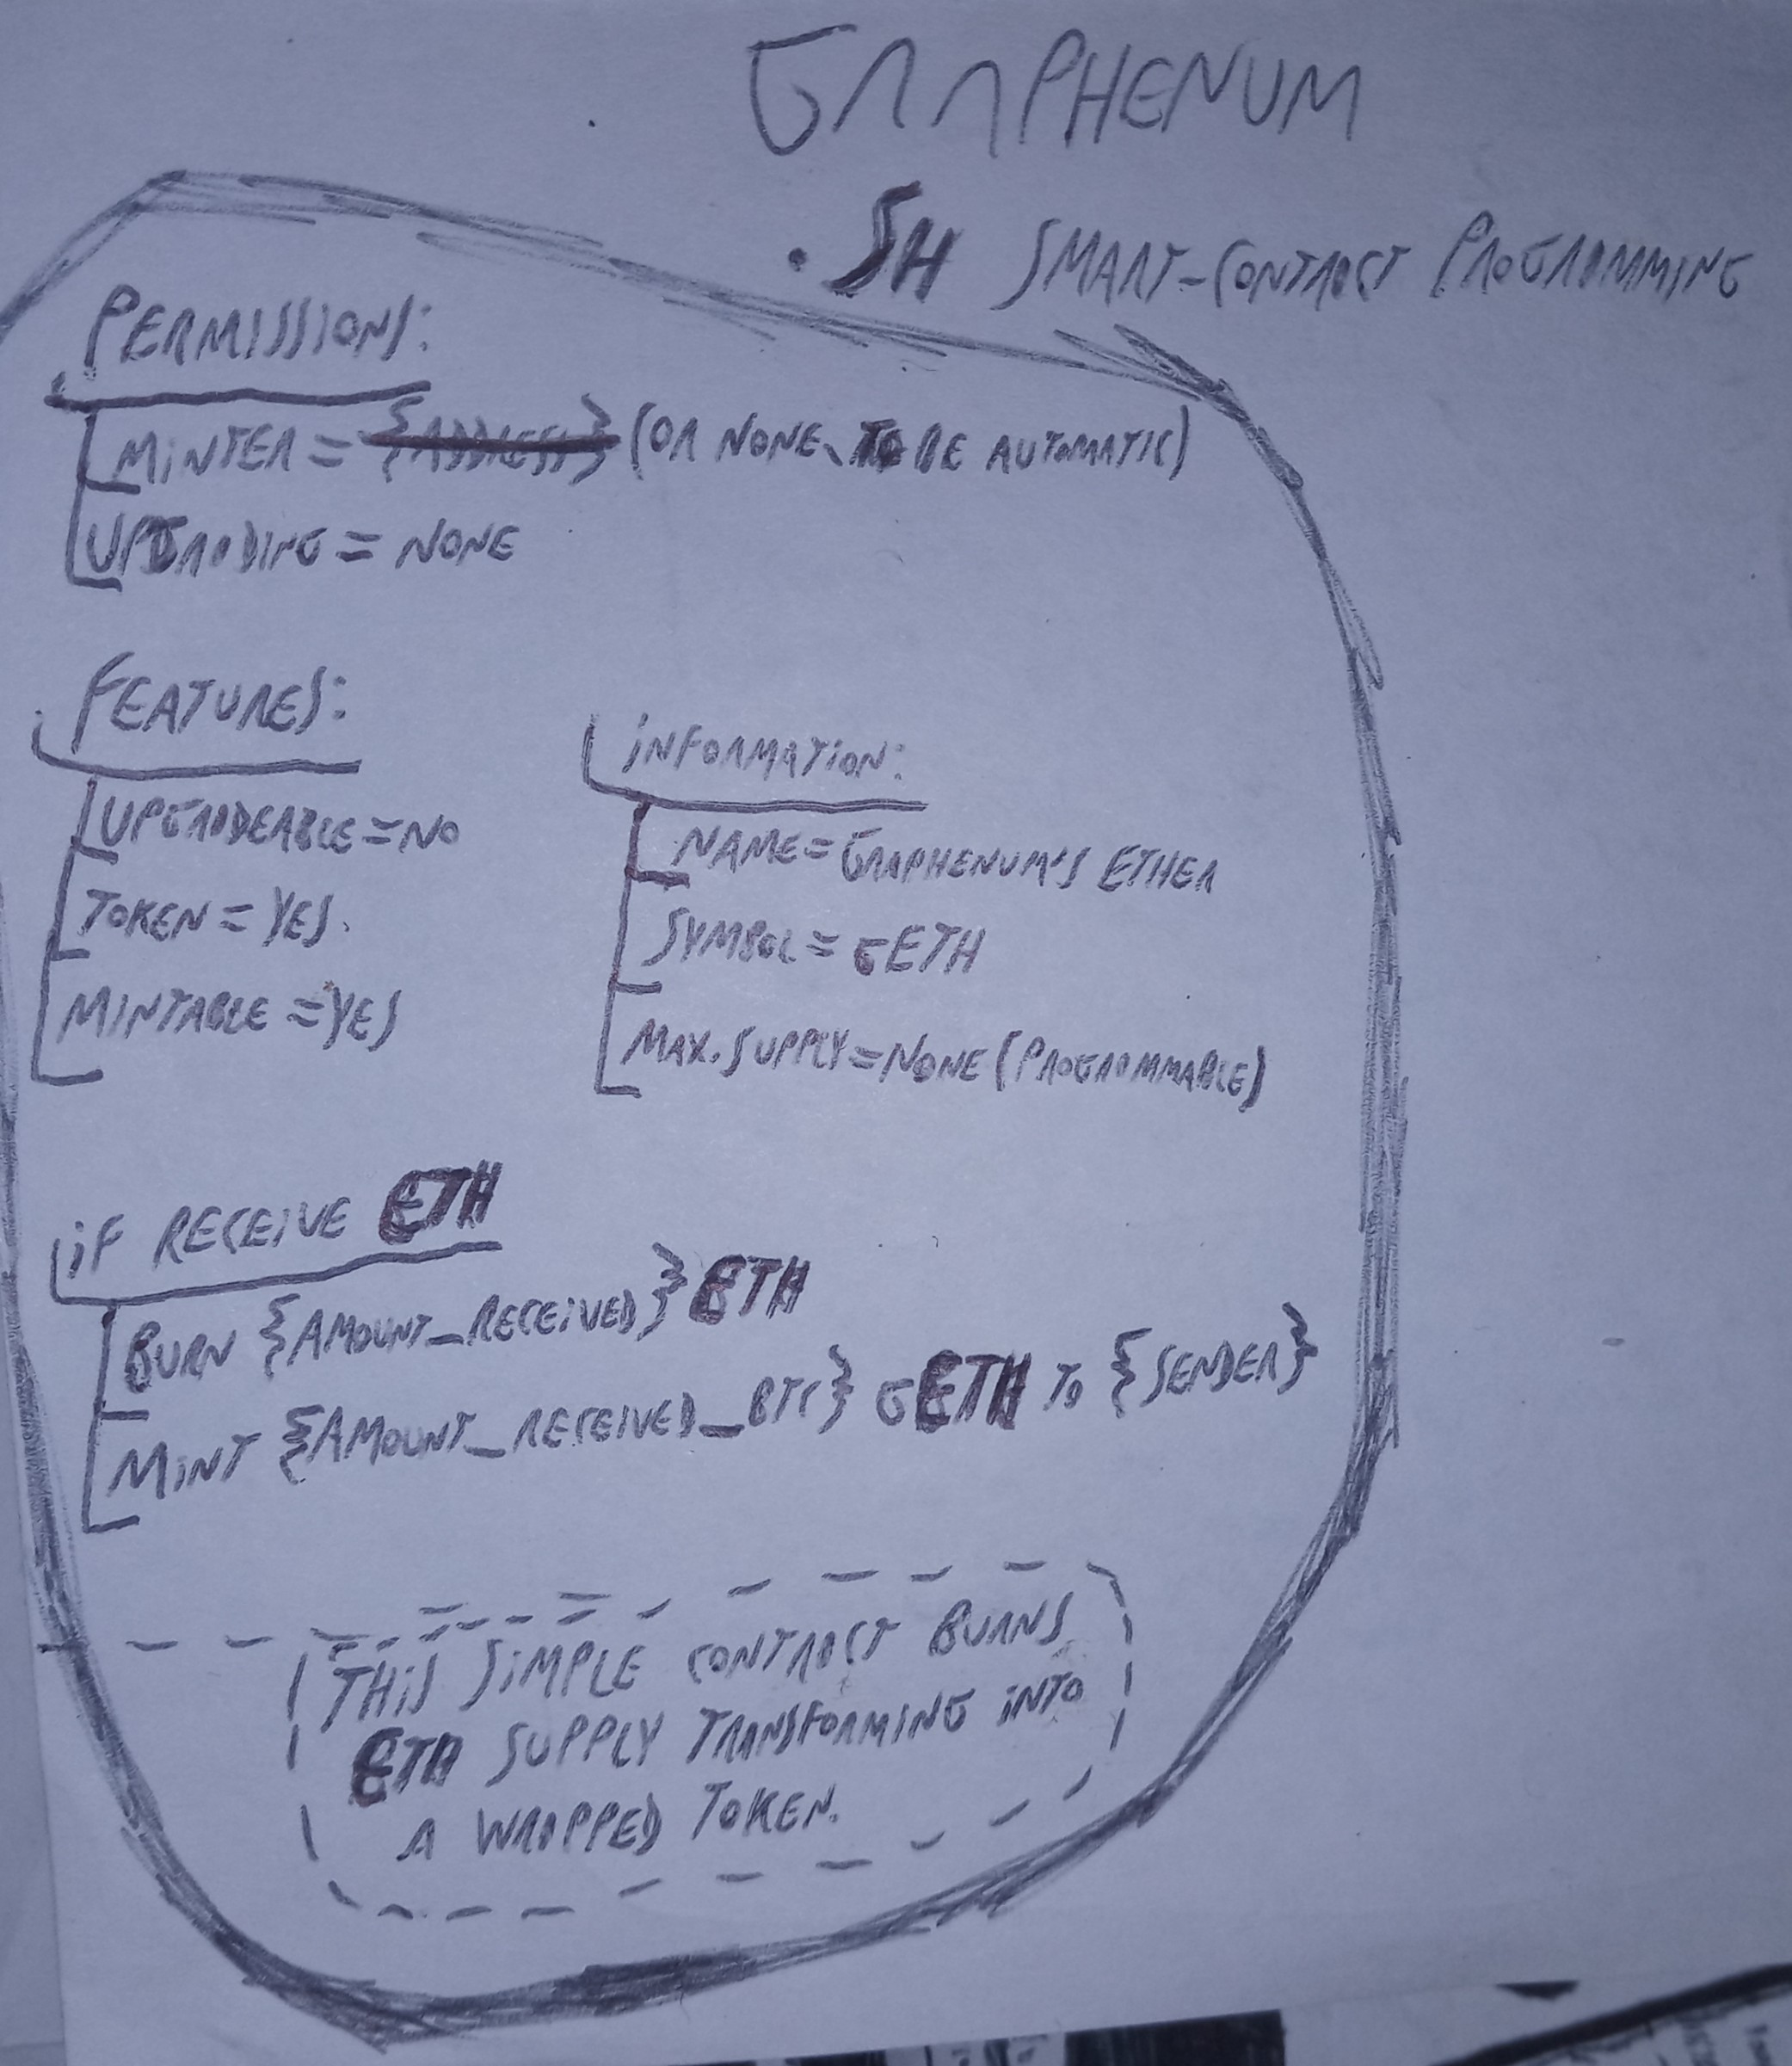 GRAPHENUM
.SH SMART-CONTRACT PROGRAMMING
PERMISSIONS:
MINTER = {ADDRESS} (OR NONE, TO BE AUTOMATIC)
UPGRADING = NONE
FEATURES:
UPGRADEABLE = NO
TOKEN = YES.
MINTABLE = YES
INFORMATION:
NAME = GRAPHENUM'S ETHER
SYMBOL = GETH
MAX. SUPPLY = NONE (PROGRAMMABLE)
IF RECEIVE ETH
BURN {AMOUNT_RECEIVED} ETH
MINT {AMOUNT_RECEIVED_BTC} GETH TO {SENDER}
THIS SIMPLE CONTRACT BURNS
ETH SUPPLY TRANSFORMING INTO
A WRAPPED TOKEN.